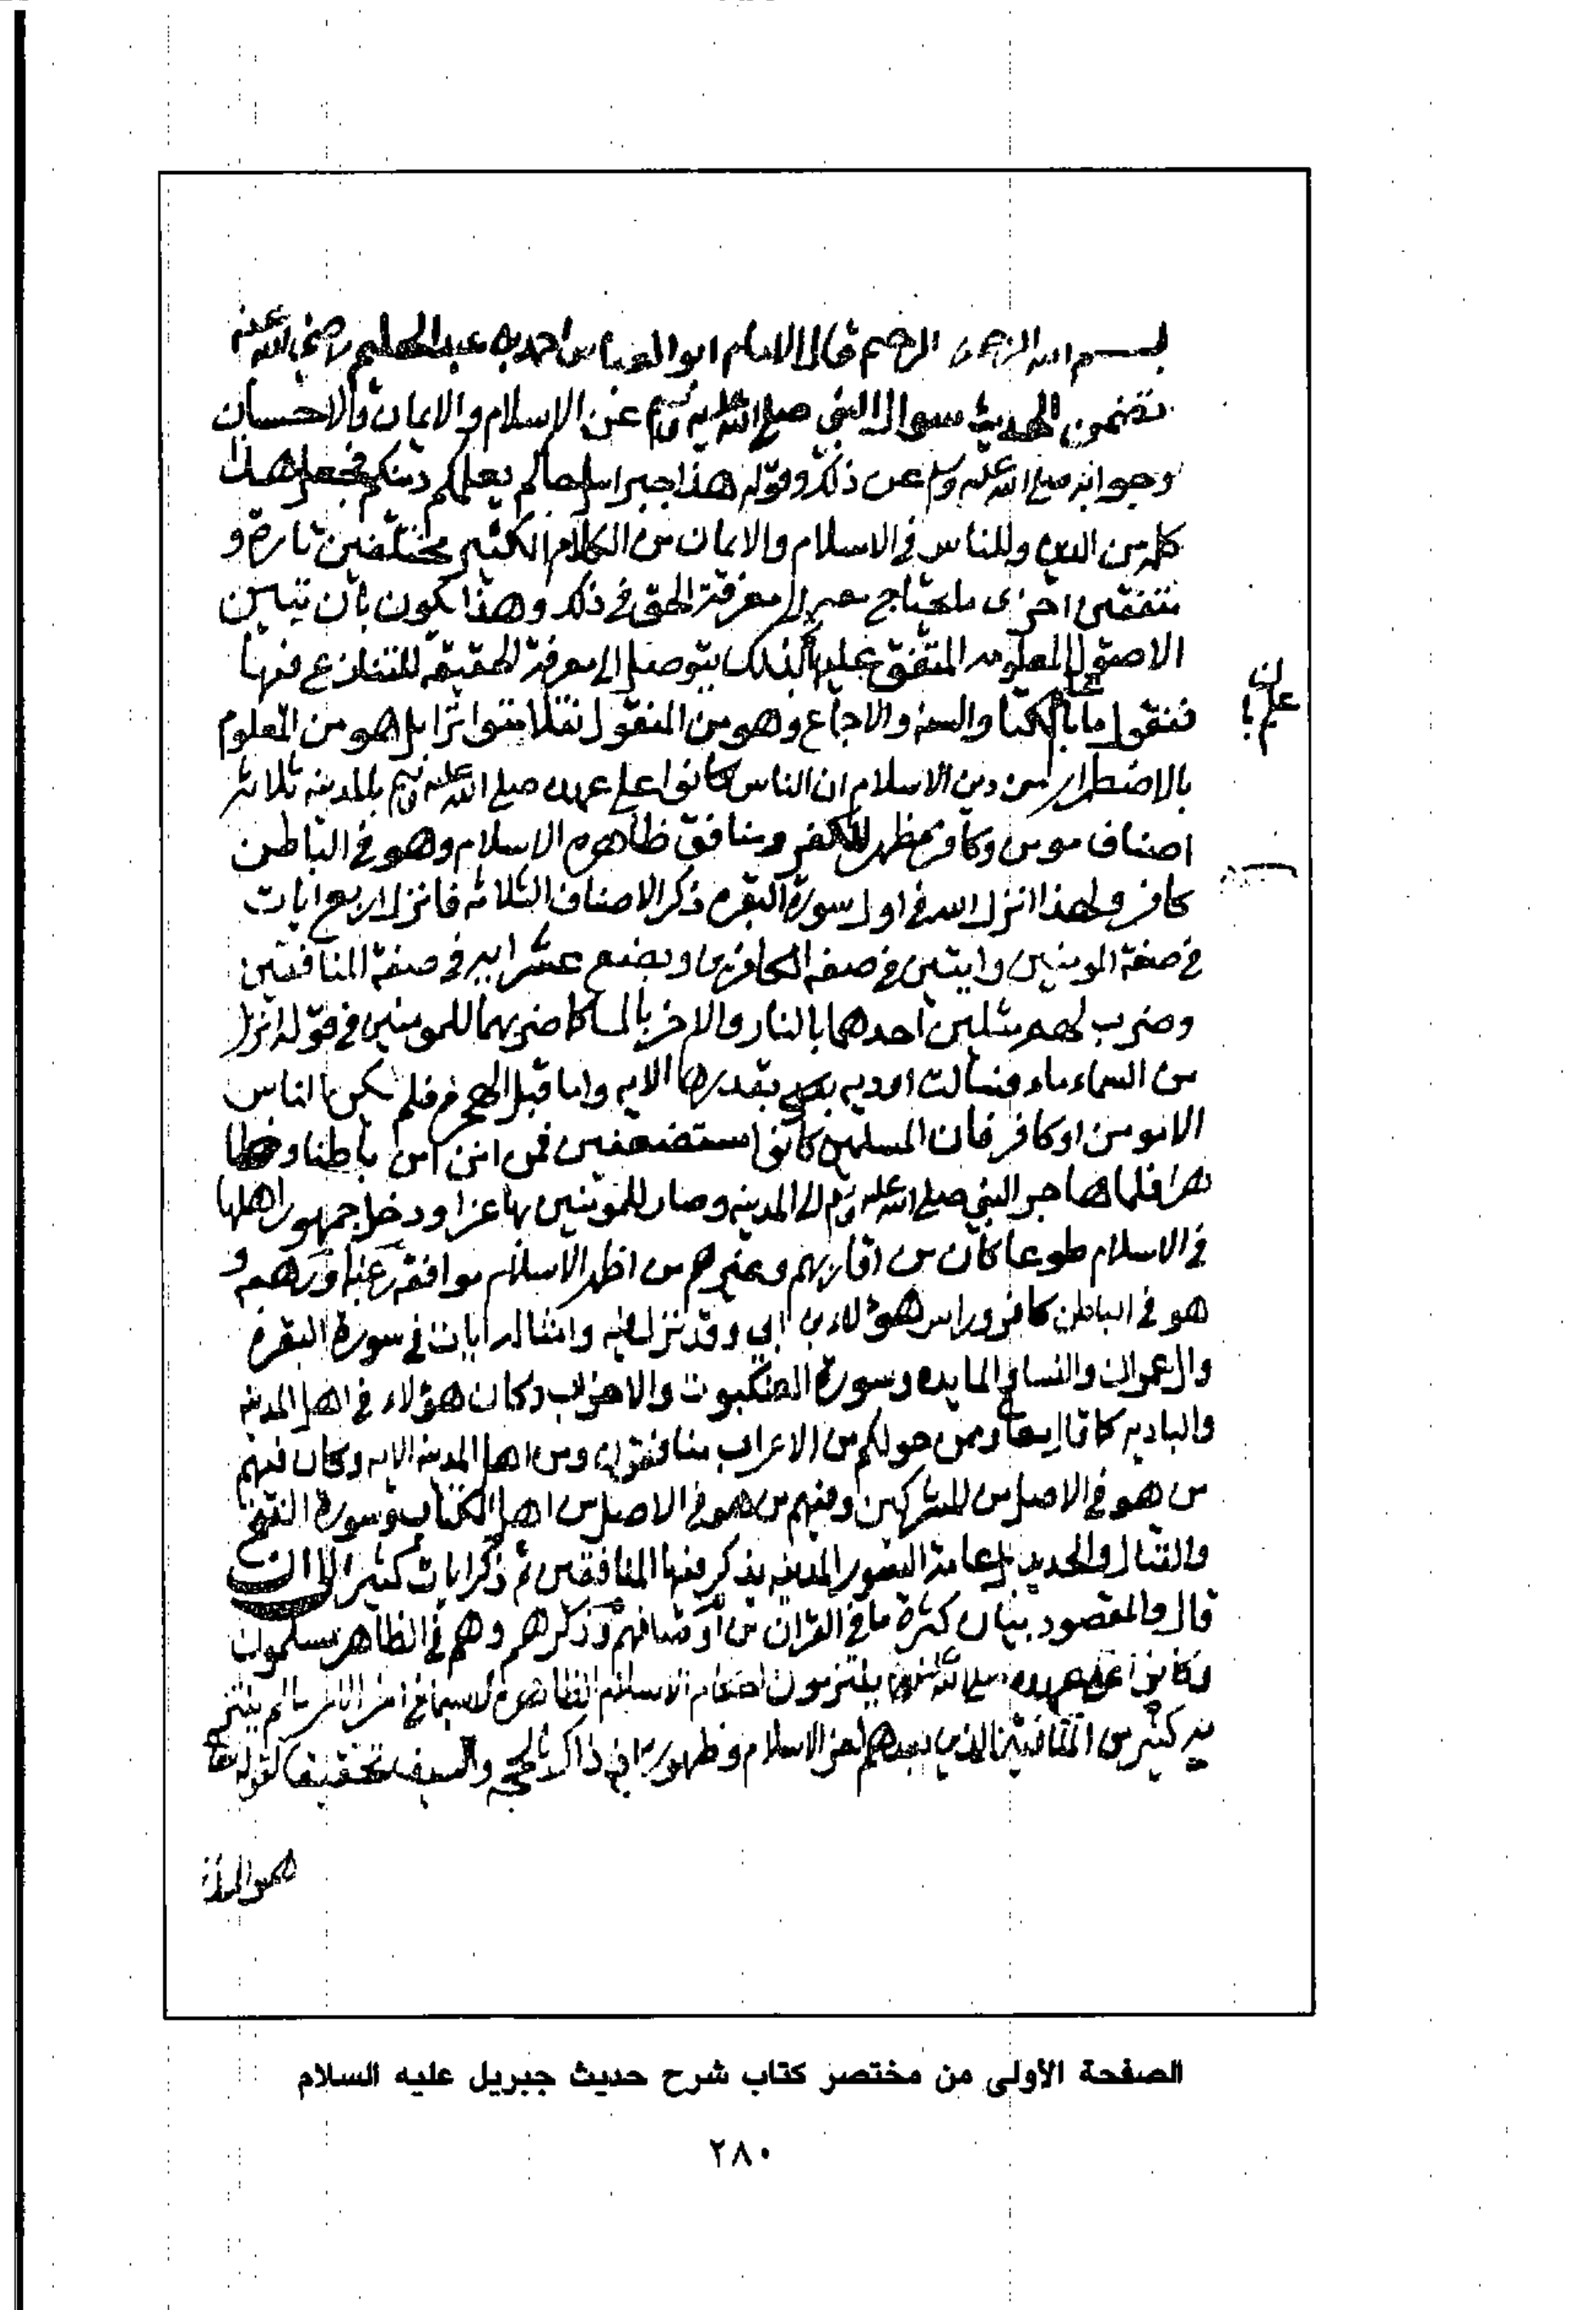 بسم الله الرحمن الرحيم قال الامام ابو العباس احمد بن عبد الحليم رضي الله عنه
تضمن الحديث سوال النبي صلى الله عليه وسلم عن الاسلام والايمان والاحسان
وجوابه صلى الله عليه وسلم عن ذلك وقوله هذا جبرايل جاكم يعلمكم دينكم فجعل هذا
كله من الدين وللناس في الاسلام والايمان من الكلام الكثير مختلفين تارة و
متفقين اخرى ما يحتاج معه الى معرفة الحق في ذلك وهذا يكون بان تبين
الاصول المعلومه المتفق عليها فبذلك يتوصل الى معرفة الحقيقه المتنازع فيها
فنقول ما بالكتاب والسنه والاجماع وهو من المنقول نقلا متواترا بل هو من المعلوم
بالاضطرار من دين الاسلام ان الناس كانوا على عهده صلى الله عليه وسلم بالمدينه ثلاثة
اصناف مومن وكافر مظهر للكفر ومنافق ظاهره الاسلام وهو في الباطن
كافر ولهذا انزل الله في اول سورة البقره ذكر الاصناف الثلاثه فانزل اربع ايات
في صفة المومنين وايتين في صفه الكافرين وبضع عشر ايه في صفة المنافقين
وضرب لهم مثلين احدهما بالنار والاخر بالماء كما ضربهما للمومنين في قوله انزل
من السماء ماء فسالت اوديه بقدرها الايه واما قبل الهجره فلم يكن الناس
الا مومن او كافر فان المسلمين كانوا مستضعفين فمن امن امن باطنا وظا
هرا فلما هاجر النبي صلى الله عليه وسلم الى المدينه وصار للمومنين بها عزا ودخل جمهور اهلها
في الاسلام طوعا كان من اقاربهم وغيرهم من اظهر الاسلام موافقه رغبه ورهبه و
هو في الباطن كافر وراس هؤلاء بن ابي وقد نزل فيه وامثاله ايات في سورة البقره
وال عمران والنسا والمايده وسورة العنكبوت والاحزاب وكان هؤلاء في اهل المدينه
والباديه كما قال تعالى وممن حولكم من الاعراب منافقون ومن اهل المدينه الايه وكان فيهم
من هو في الاصل من المشركين وفيهم من هو في الاصل من اهل الكتاب وسورة الفتح
والقتال والحديد بل عامة السور المدنيه يذكر فيها المنافقين ثم ذكر ايات كثيرا الى ان
قال والمقصود بيان كثرة ما في القران من اوصافهم وذكرهم وهم في الظاهر مسلمون
وكانوا على عهده صلى الله عليه وسلم يلتزمون احكام الاسلام الظاهره لا سيما في اخر الامر ما لم يلتزمه
كثير من المنافقين الذين بعدهم لعز الاسلام وظهوره اذ ذاك بالحجه والسيف تحقيقا لقوله تعالى
هو الذي
الصفحة الأولى من مختصر كتاب شرح حديث جبريل عليه السلام
٢٨٠